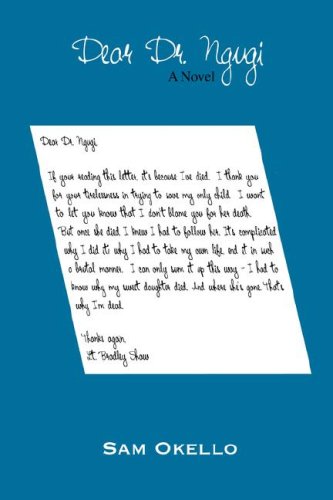 Dear Dr. Ngugi
A Novel
Dear Dr. Ngugi
If your reading this letter, it's because I've died. I thank you
for your tirelessness in trying to save my only child. I want
to let you know that I don't blame you for her death.
But once she died I knew I had to follow her. It's complicated
why I did it; why I had to take my own life, end it in such
a brutal manner. I can only sum it up this way - I had to
know why my sweet daughter died. And where she's gone. That's
why I'm dead.
Thanks again,
Lt. Bradley Shaw
SAM OKELLO